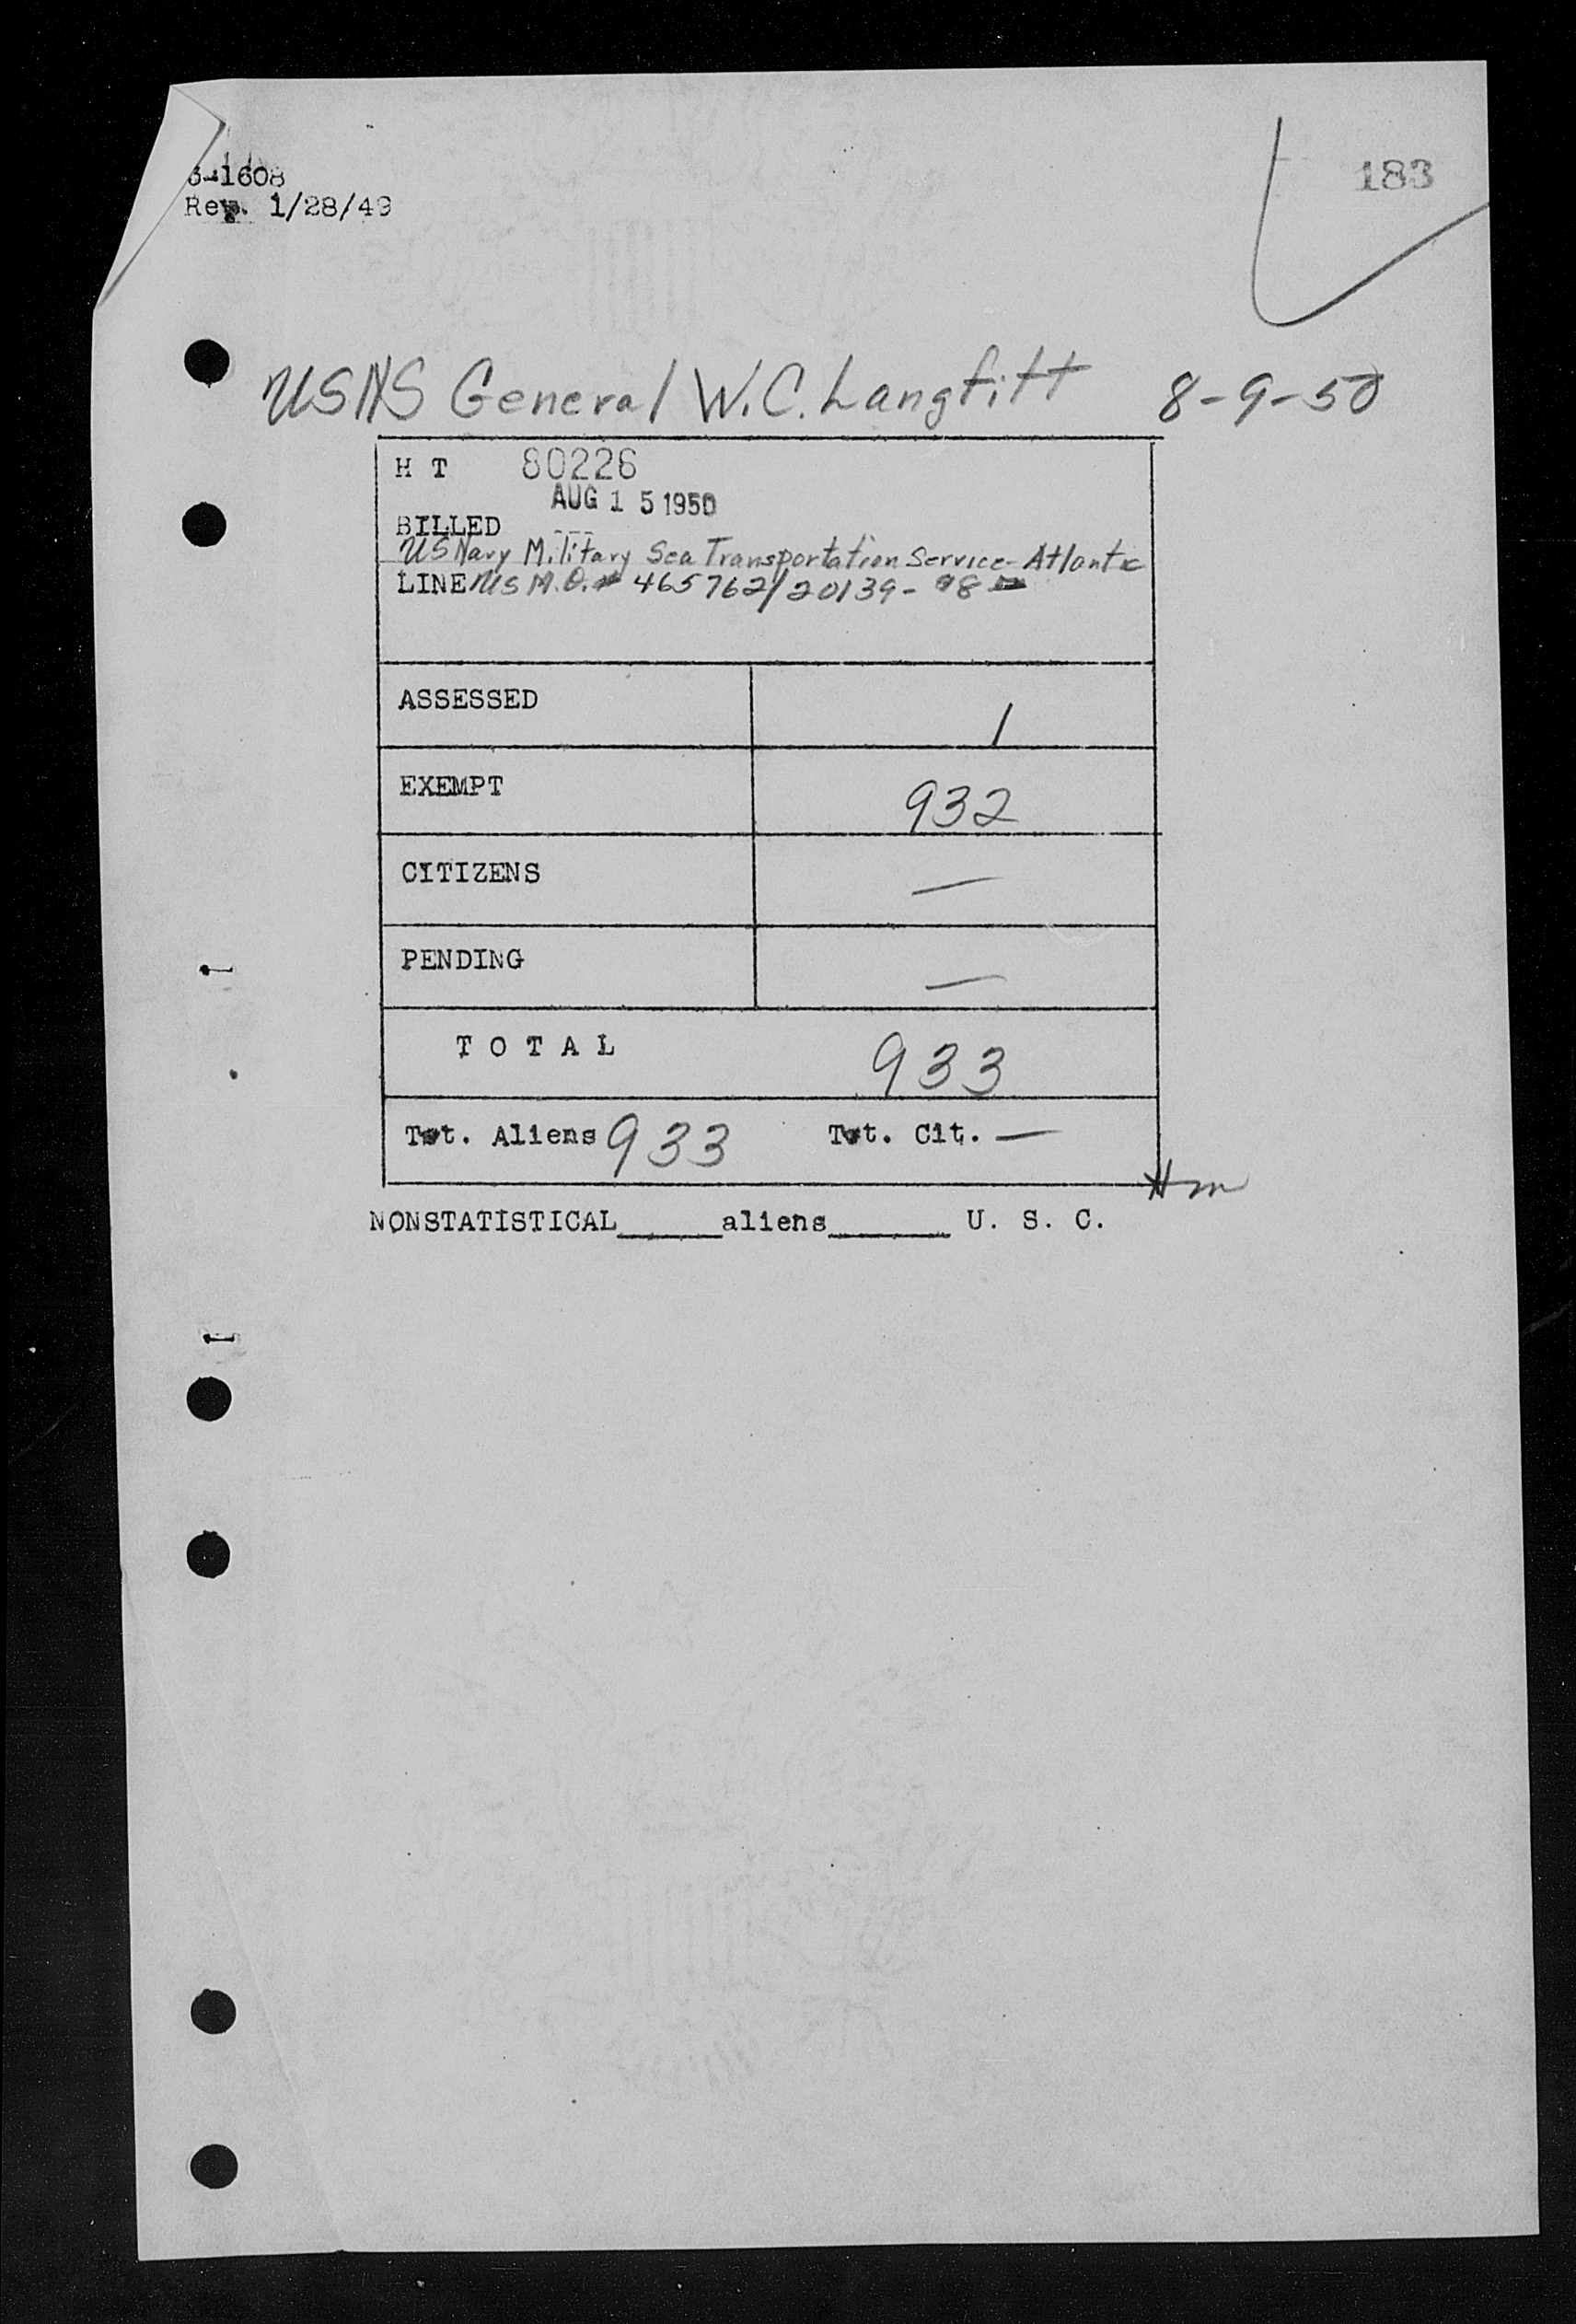 183
3-1608
Rev. 1/28/49
USNS General W.C. Langfitt 8-9-50
H T 80226
AUG 15 1950
BILLED
US Navy Military Sea Transportation Service-Atlantic
LINE US M.O. 465762/20139-98
ASSESSED 1
EXEMPT 932
CITIZENS —
PENDING —
T O T A L 933
Tot. Aliens 933 Tot. Cit. —
NONSTATISTICAL_____aliens______ U. S. C.